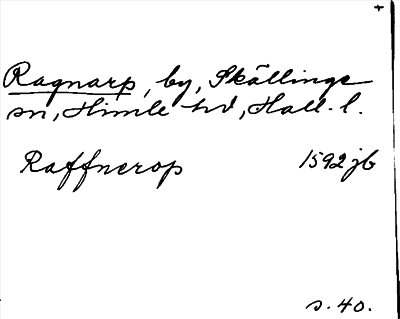 +
Ragnarp, by, Skällinge
sn, Himle hd, Hall. l.
Raffnerop 1592 jb
s. 40.